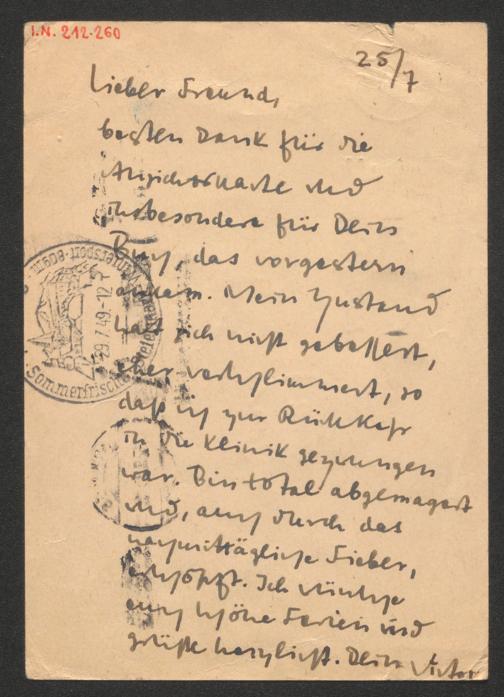 I.N. 212.260
25/7
Lieber Freund,
besten Dank für die
Ansichtskarte und
insbesondere für Dein
Buch, das vorgestern
ankam. Mein Zustand
hat sich nicht gebessert,
eher verschlimmert, so
daß ich zur Rückkehr
in die Klinik gezwungen
war. Bin total abgemagert
und, auch durch das
nachmittägliche Fieber,
erschöpft. Ich wünsche
euch schöne Ferien und
grüße herzlichst. Dein Victor
29.7.49-12
Sommerfrische